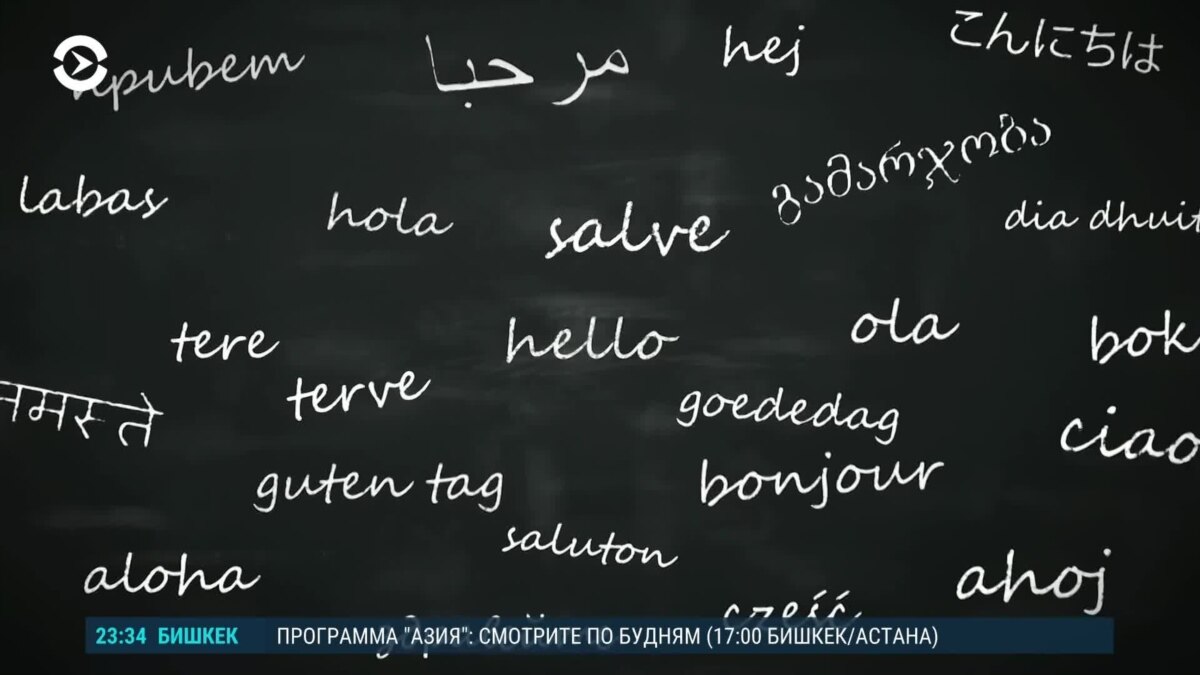 привет
مرحبا
hej
こんにちは
გამარჯობა
labas
hola
salve
dia dhuit
tere
hello
ola
bok
terve
नमस्ते
goededag
ciao
guten tag
bonjour
saluton
aloha
ahoj
cześć
23:34 БИШКЕК ПРОГРАММА "АЗИЯ": СМОТРИТЕ ПО БУДНЯМ (17:00 БИШКЕК/АСТАНА)